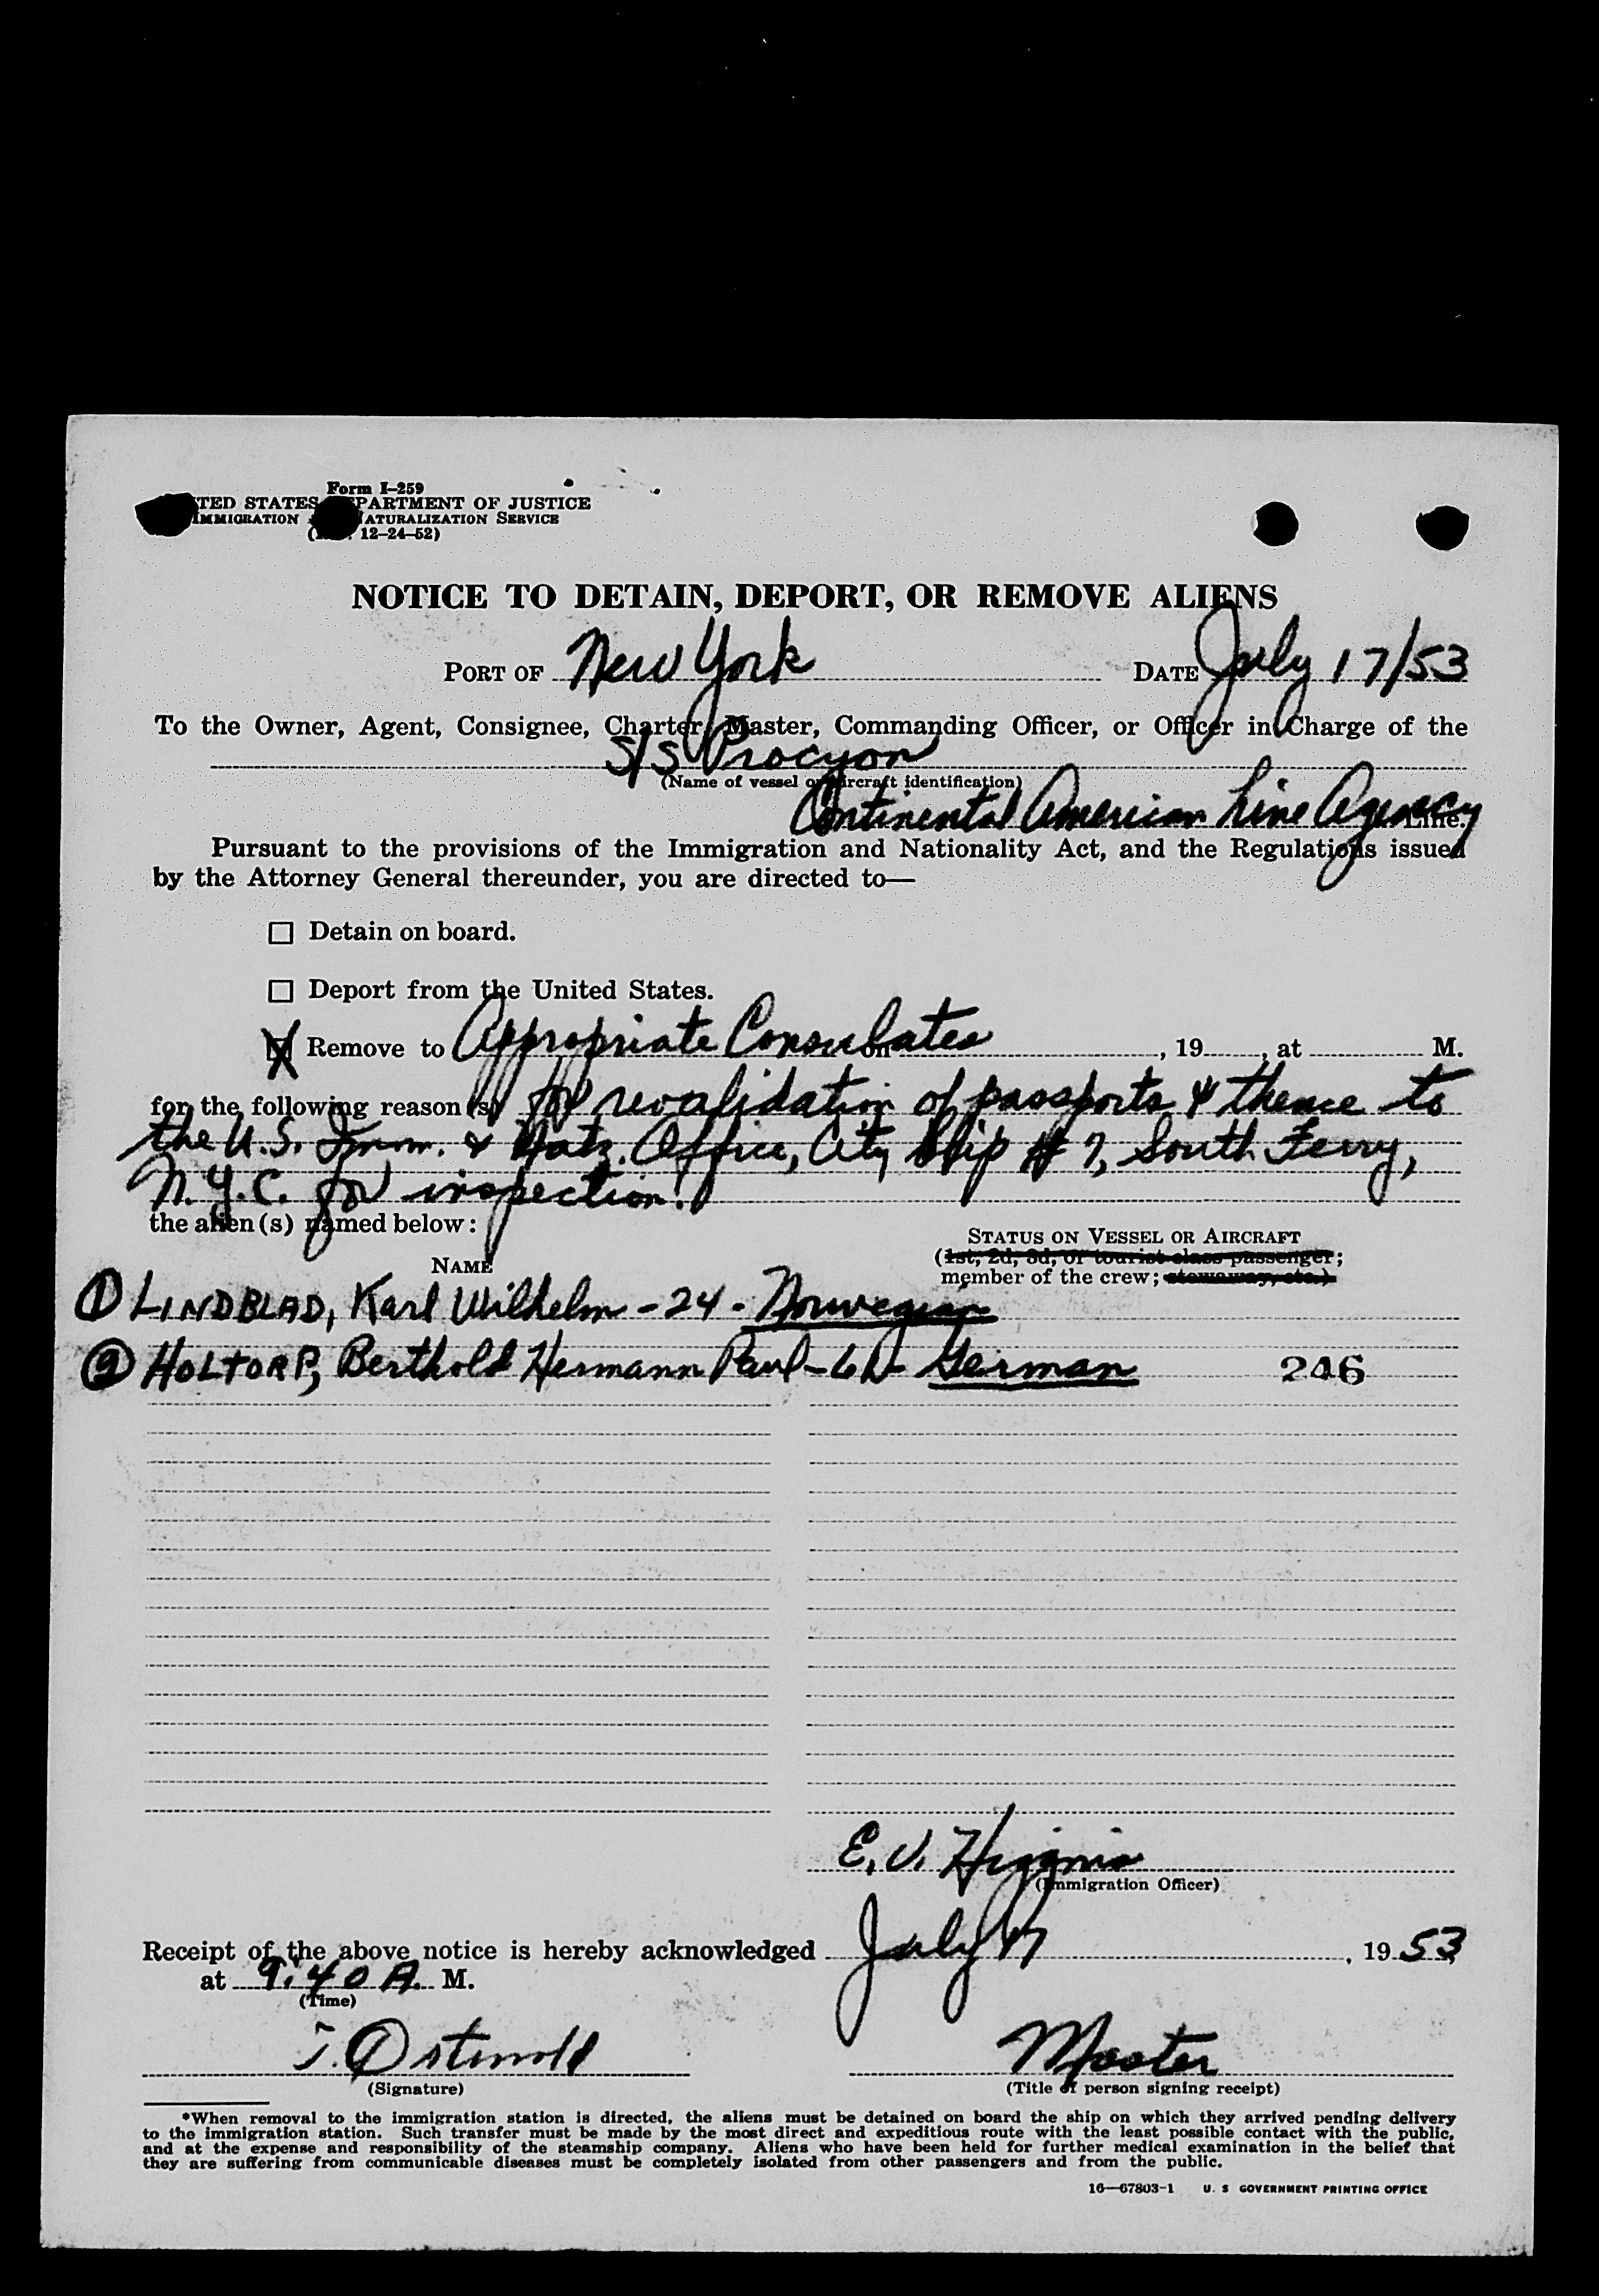 Form I-259
TED STATES PARTMENT OF JUSTICE
IMMIGRATION NATURALIZATION SERVICE
( 12-24-52)
NOTICE TO DETAIN, DEPORT, OR REMOVE ALIENS
PORT OF New York DATE July 17/53
To the Owner, Agent, Consignee, Charter, Master, Commanding Officer, or Officer in Charge of the
S/S Procyon
(Name of vessel or aircraft identification)
Continental American Line Agency Line.
Pursuant to the provisions of the Immigration and Nationality Act, and the Regulations issued
by the Attorney General thereunder, you are directed to—
☐ Detain on board.
☐ Deport from the United States.
☒ Remove to Appropriate Consulates on , 19 , at M.
for the following reason(s) for revalidation of passports & thence to
the U.S. Imm. & Natz. Office, City Slip # 7, South Ferry,
N.Y.C. for inspection.
the alien(s) named below:
STATUS ON VESSEL OR AIRCRAFT
(1st, 2d, 3d, or tourist class passenger;
NAME
member of the crew; stowaway, etc.)
① LINDBLAD, Karl Wilhelm - 24 - Norwegian
② HOLTORP, Berthold Hermann Paul - German 246
E. V. Higgins
(Immigration Officer)
Receipt of the above notice is hereby acknowledged July 17, 1953
at 9:40 A. M.
(Time)
Master
(Signature) (Title of person signing receipt)
*When removal to the immigration station is directed, the aliens must be detained on board the ship on which they arrived pending delivery
to the immigration station. Such transfer must be made by the most direct and expeditious route with the least possible contact with the public,
and at the expense and responsibility of the steamship company. Aliens who have been held for further medical examination in the belief that
they are suffering from communicable diseases must be completely isolated from other passengers and from the public.
16—67803-1 U. S GOVERNMENT PRINTING OFFICE